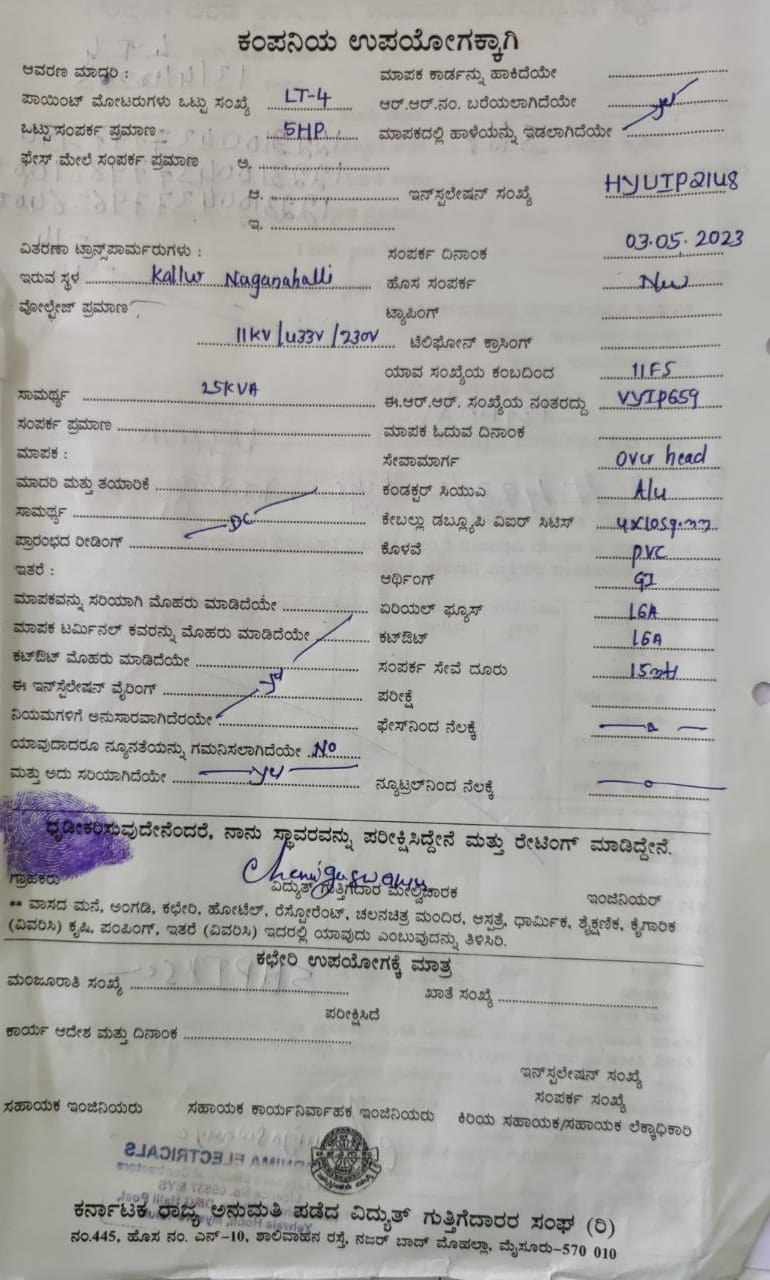 ಕಂಪನಿಯ ಉಪಯೋಗಕ್ಕಾಗಿ
ಆವರಣ ಮಾದರಿ : ಮಾಪಕ ಕಾರ್ಡನ್ನು ಹಾಕಿದೆಯೇ
ಪಾಯಿಂಟ್ ಮೋಟರುಗಳು ಒಟ್ಟು ಸಂಖ್ಯೆ LT-4 ಆರ್.ಆರ್.ನಂ. ಬರೆಯಲಾಗಿದೆಯೇ yes
ಒಟ್ಟು ಸಂಪರ್ಕ ಪ್ರಮಾಣ 5HP ಮಾಪಕದಲ್ಲಿ ಹಾಳೆಯನ್ನು ಇಡಲಾಗಿದೆಯೇ
ಫೇಸ್ ಮೇಲೆ ಸಂಪರ್ಕ ಪ್ರಮಾಣ ಅ.
ಆ. ಇನ್‌ಸ್ಟಲೇಷನ್ ಸಂಖ್ಯೆ HYUIP2148
ಇ.
ವಿತರಣಾ ಟ್ರಾನ್ಸ್‌ಪಾರ್ಮರುಗಳು : ಸಂಪರ್ಕ ದಿನಾಂಕ 03.05.2023
ಇರುವ ಸ್ಥಳ Kallur Naganahalli ಹೊಸ ಸಂಪರ್ಕ New
ವೋಲ್ಟೇಜ್ ಪ್ರಮಾಣ ಟ್ಯಾಪಿಂಗ್
11KV/433V/230V ಟೆಲಿಫೋನ್ ಕ್ರಾಸಿಂಗ್
ಯಾವ ಸಂಖ್ಯೆಯ ಕಂಬದಿಂದ 11F5
ಸಾಮರ್ಥ್ಯ 25KVA ಈ.ಆರ್.ಆರ್. ಸಂಖ್ಯೆಯ ನಂತರದ್ದು VYIP659
ಸಂಪರ್ಕ ಪ್ರಮಾಣ ಮಾಪಕ ಓದುವ ದಿನಾಂಕ
ಮಾಪಕ : ಸೇವಾಮಾರ್ಗ Over head
ಮಾದರಿ ಮತ್ತು ತಯಾರಿಕೆ ಕಂಡಕ್ಟರ್ ಸಿಯುಎ Alu
ಸಾಮರ್ಥ್ಯ DC ಕೇಬಲ್ಲು ಡಬ್ಲ್ಯೂಪಿ ವಿಐರ್ ಸಿಟಿಸ್ 4x10sq.mm
ಪ್ರಾರಂಭದ ರೀಡಿಂಗ್ ಕೊಳವೆ PVC
ಇತರೆ : ಆರ್ಥಿಂಗ್ GI
ಮಾಪಕವನ್ನು ಸರಿಯಾಗಿ ಮೊಹರು ಮಾಡಿದೆಯೇ ಏರಿಯಲ್ ಫ್ಯೂಸ್ 16A
ಮಾಪಕ ಟರ್ಮಿನಲ್ ಕವರನ್ನು ಮೊಹರು ಮಾಡಿದೆಯೇ ಕಟ್‌ಔಟ್ 16A
ಕಟ್‌ಔಟ್ ಮೊಹರು ಮಾಡಿದೆಯೇ ಸಂಪರ್ಕ ಸೇವೆ ದೂರು 15mt
ಈ ಇನ್‌ಸ್ಟಲೇಷನ್ ವೈರಿಂಗ್ ಪರೀಕ್ಷೆ
ನಿಯಮಗಳಿಗೆ ಅನುಸಾರವಾಗಿದೆರಯೇ ಫೇಸ್‌ನಿಂದ ನೆಲಕ್ಕೆ
ಯಾವುದಾದರೂ ನ್ಯೂನತೆಯನ್ನು ಗಮನಿಸಲಾಗಿದೆಯೇ No
ಮತ್ತು ಅದು ಸರಿಯಾಗಿದೆಯೇ yes ನ್ಯೂಟ್ರಲ್‌ನಿಂದ ನೆಲಕ್ಕೆ
ಧೃಡೀಕರಿಸುವುದೇನೆಂದರೆ, ನಾನು ಸ್ಥಾವರವನ್ನು ಪರೀಕ್ಷಿಸಿದ್ದೇನೆ ಮತ್ತು ರೇಟಿಂಗ್ ಮಾಡಿದ್ದೇನೆ.
ಗ್ರಾಹಕರು ವಿದ್ಯುತ್ ಗುತ್ತಿಗೆದಾರ ಮೇಲ್ವಿಚಾರಕ ಇಂಜಿನಿಯರ್
** ವಾಸದ ಮನೆ, ಅಂಗಡಿ, ಕಛೇರಿ, ಹೋಟೆಲ್, ರೆಸ್ಟೋರೆಂಟ್, ಚಲನಚಿತ್ರ ಮಂದಿರ, ಆಸ್ಪತ್ರೆ, ಧಾರ್ಮಿಕ, ಶೈಕ್ಷಣಿಕ, ಕೈಗಾರಿಕೆ
(ವಿವರಿಸಿ) ಕೃಷಿ, ಪಂಪಿಂಗ್, ಇತರೆ (ವಿವರಿಸಿ) ಇದರಲ್ಲಿ ಯಾವುದು ಎಂಬುವುದನ್ನು ತಿಳಿಸಿರಿ.
ಕಛೇರಿ ಉಪಯೋಗಕ್ಕೆ ಮಾತ್ರ
ಮಂಜೂರಾತಿ ಸಂಖ್ಯೆ ಖಾತೆ ಸಂಖ್ಯೆ
ಪರೀಕ್ಷಿಸಿದೆ
ಕಾರ್ಯ ಆದೇಶ ಮತ್ತು ದಿನಾಂಕ
ಇನ್‌ಸ್ಟಲೇಷನ್ ಸಂಖ್ಯೆ
ಸಂಪರ್ಕ ಸಂಖ್ಯೆ
ಸಹಾಯಕ ಇಂಜಿನಿಯರು ಸಹಾಯಕ ಕಾರ್ಯನಿರ್ವಾಹಕ ಇಂಜಿನಿಯರು ಕಿರಿಯ ಸಹಾಯಕ/ಸಹಾಯಕ ಲೆಕ್ಕಾಧಿಕಾರಿ
ಕರ್ನಾಟಕ ರಾಜ್ಯ ಅನುಮತಿ ಪಡೆದ ವಿದ್ಯುತ್ ಗುತ್ತಿಗೆದಾರರ ಸಂಘ (ರಿ)
ನಂ.445, ಹೊಸ ನಂ. ಎನ್-10, ಶಾಲಿವಾಹನ ರಸ್ತೆ, ನಜರ್ ಬಾದ್ ಮೊಹಲ್ಲಾ, ಮೈಸೂರು-570 010